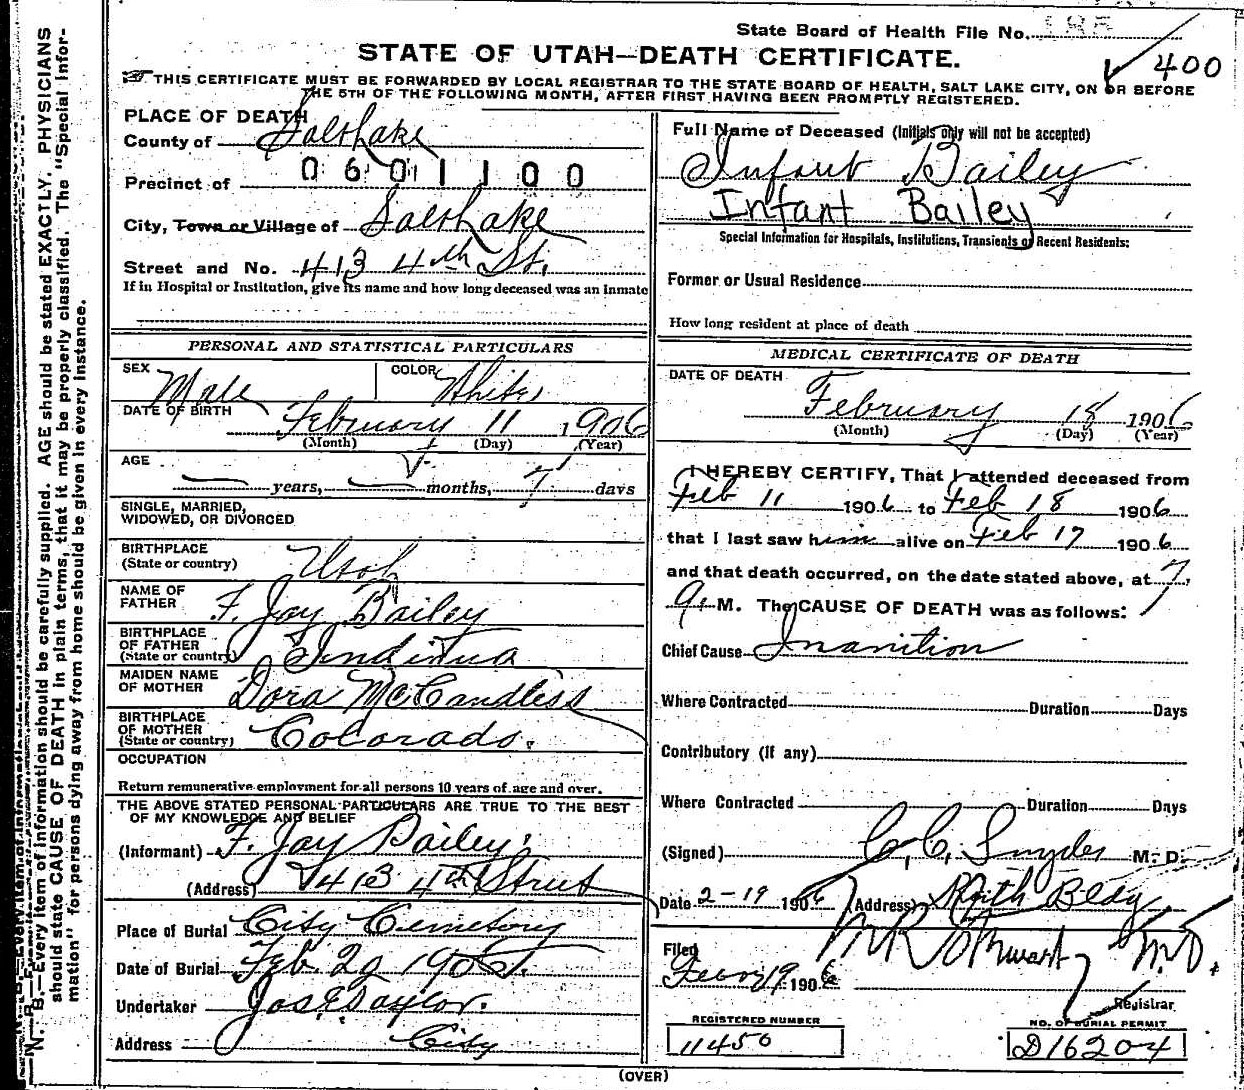 State Board of Health File No. 195
STATE OF UTAH—DEATH CERTIFICATE.
400
THIS CERTIFICATE MUST BE FORWARDED BY LOCAL REGISTRAR TO THE STATE BOARD OF HEALTH, SALT LAKE CITY, ON OR BEFORE
THE 5TH OF THE FOLLOWING MONTH, AFTER FIRST HAVING BEEN PROMPTLY REGISTERED.
PLACE OF DEATH
County of Salt Lake
0601100
Precinct of
City, Town or Village of Salt Lake
Street and No. 413 4th St.
If in Hospital or Institution, give its name and how long deceased was an inmate
Full Name of Deceased (Initials only will not be accepted)
Infant Bailey
Infant Bailey
Special Information for Hospitals, Institutions, Transients or Recent Residents:
Former or Usual Residence
How long resident at place of death
PERSONAL AND STATISTICAL PARTICULARS
SEX Male COLOR White
DATE OF BIRTH
February 11, 1906
(Month) (Day) (Year)
AGE
— years, — months, 7 days
SINGLE, MARRIED,
WIDOWED, OR DIVORCED
BIRTHPLACE
(State or country) Utah
NAME OF
FATHER F. Jay Bailey
BIRTHPLACE
OF FATHER
(State or country) Indiana
MAIDEN NAME
OF MOTHER Dora McCandless
BIRTHPLACE
OF MOTHER
(State or country) Colorado.
OCCUPATION
Return remunerative employment for all persons 10 years of age and over.
THE ABOVE STATED PERSONAL PARTICULARS ARE TRUE TO THE BEST
OF MY KNOWLEDGE AND BELIEF
(Informant) F. Jay Bailey,
(Address) 413 4th Street
Place of Burial City Cemetery
Date of Burial Feb 20 1906
Undertaker Jos E Taylor.
Address City
MEDICAL CERTIFICATE OF DEATH
DATE OF DEATH
February 18 1906
(Month) (Day) (Year)
I HEREBY CERTIFY, That I attended deceased from
Feb 11 1906 to Feb 18 1906
that I last saw him alive on Feb 17 1906
and that death occurred, on the date stated above, at 7,
a. M. The CAUSE OF DEATH was as follows:
Chief Cause Inanition
Where Contracted Duration Days
Contributory (If any)
Where Contracted Duration Days
(Signed) C. C. Snyder M. D.
Date 2-19 1906 (Address) Keith Bldg
Filed
19 1906 M R Stewart M.D.
Registrar
REGISTERED NUMBER
11450
NO. OF BURIAL PERMIT
D16204
(OVER)
N. B.—Every item of information should be carefully supplied. AGE should be stated EXACTLY. PHYSICIANS
should state CAUSE OF DEATH in plain terms, that it may be properly classified. The "Special Infor-
mation" for persons dying away from home should be given in every instance.